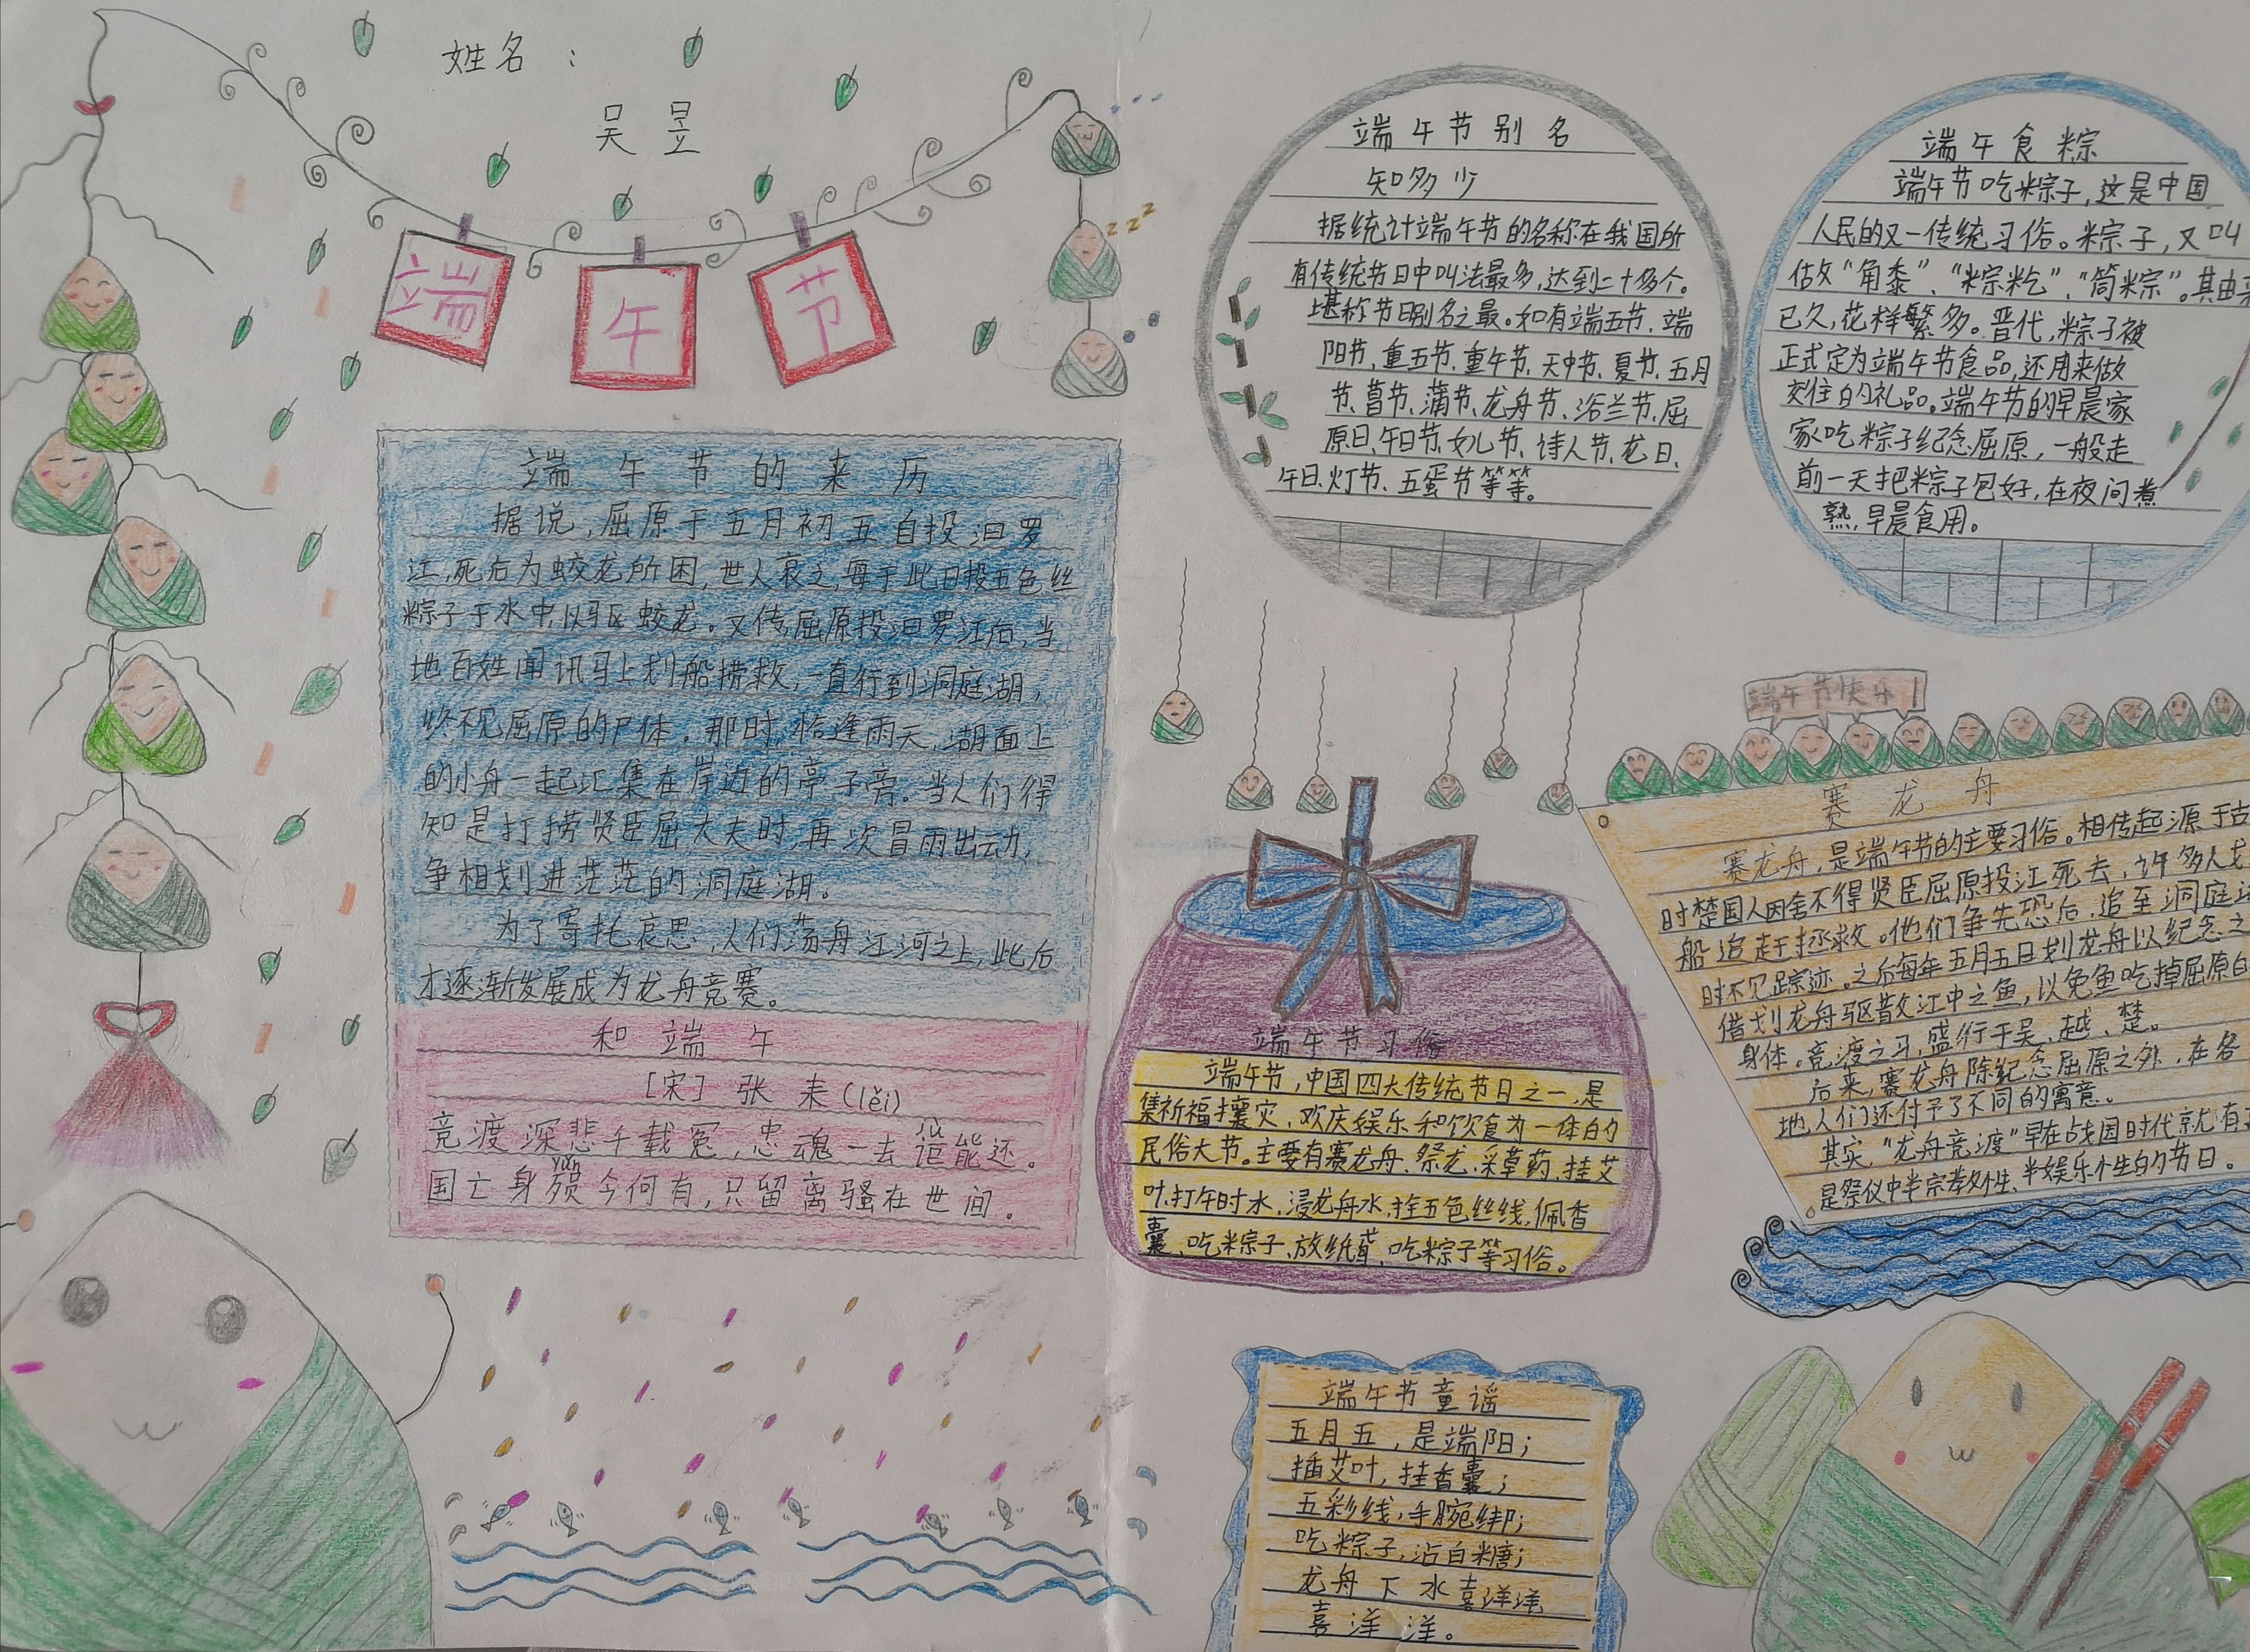 姓名：
吴昱
端午节
端午节的来历
据说，屈原于五月初五自投汨罗
江，死后为蛟龙所困，世人哀之，每于此日投五色丝
粽子于水中，以驱蛟龙。又传，屈原投汨罗江后，当
地百姓闻讯马上划船捞救，一直行到洞庭湖，
终不见屈原的尸体。那时，恰逢雨天，湖面上
的小舟一起汇集在岸边的亭子旁。当人们得
知是打捞贤臣屈大夫时，再次冒雨出动，
争相划进茫茫的洞庭湖。
为了寄托哀思，人们荡舟江河之上，此后
才逐渐发展成为龙舟竞赛。
和端午
[宋] 张耒(lěi)
竞渡深悲千载冤，忠魂一去讵能还。
国亡身殒今何有，只留离骚在世间。
端午节别名
知多少
据统计端午节的名称在我国所
有传统节日中叫法最多，达到二十多个。
堪称节日别名之最。如有端五节、端
阳节、重五节、重午节、天中节、夏节、五月
节、菖节、蒲节、龙舟节、浴兰节、屈
原日、午日节、女儿节、诗人节、龙日、
午日、灯节、五蛋节等等。
端午食粽
端午节吃粽子，这是中国
人民的又一传统习俗。粽子，又叫
做“角黍”、“粽籺”、“筒粽”。其由来
已久，花样繁多。晋代，粽子被
正式定为端午节食品，还用来做
交往的礼品。端午节的早晨家
家吃粽子纪念屈原，一般走
前一天把粽子包好，在夜间煮
熟，早晨食用。
端午节快乐！
赛龙舟
赛龙舟，是端午节的主要习俗。相传起源于古
时楚国人因舍不得贤臣屈原投江死去，许多人划
船追赶拯救。他们争先恐后，追至洞庭
时不见踪迹。之后每年五月五日划龙舟以纪念之
借划龙舟驱散江中之鱼，以免鱼吃掉屈原的
身体。竞渡之习，盛行于吴、越、楚。
后来，赛龙舟除纪念屈原之外，在各
地人们还付予了不同的寓意。
其实，“龙舟竞渡”早在战国时代就有了
是祭仪中半宗教性、半娱乐性的节日。
端午节习俗
端午节，中国四大传统节日之一，是
集祈福攘灾、欢庆娱乐和饮食为一体的
民俗大节。主要有赛龙舟、祭龙、采草药、挂艾
叶、打午时水，浸龙舟水，拴五色丝线，佩香
囊、吃粽子、放纸鸢、吃粽子等习俗。
端午节童谣
五月五，是端阳；
插艾叶，挂香囊；
五彩线，手腕绑；
吃粽子，沾白糖；
龙舟下水喜洋洋
喜洋洋。